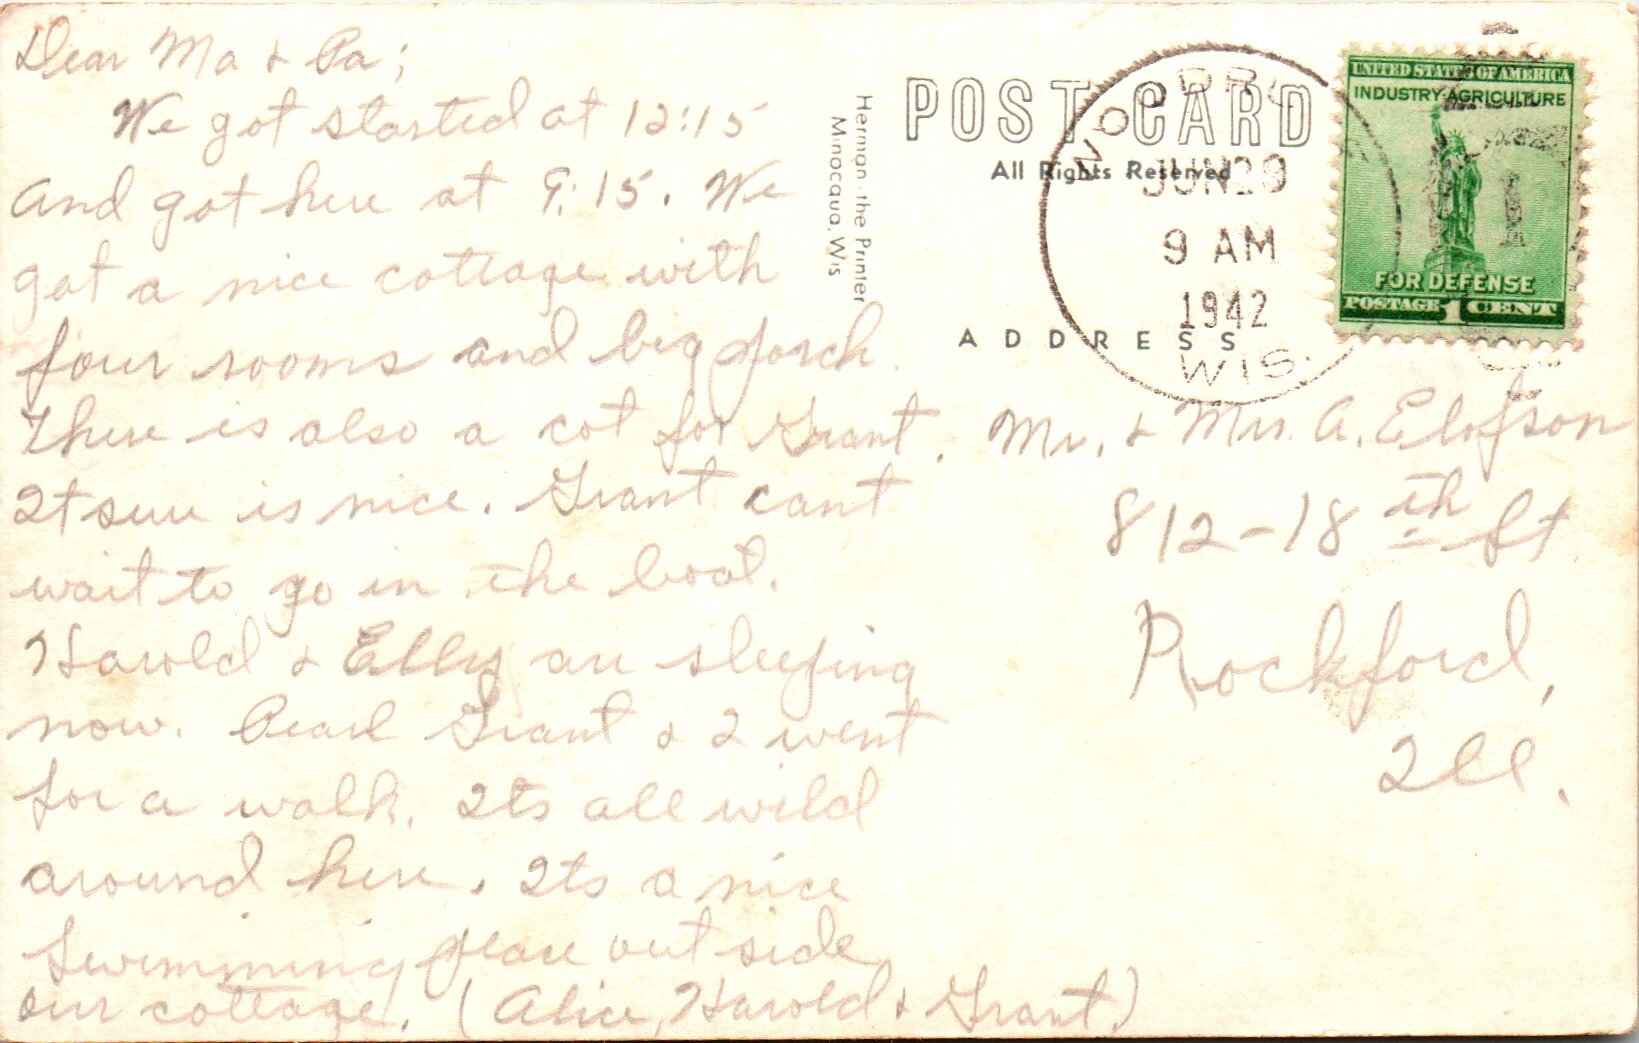 Dear Ma & Pa;
We got started at 12:15
and got here at 9:15. We
got a nice cottage with
four rooms and big porch
There is also a cot for Grant.
It sure is nice. Grant cant
wait to go in the boat.
Harold & Elly are sleeping
now. Pearl Grant & I went
for a walk. Its all wild
around here. Its a nice
swimming place out side
our cottage. (Alice, Harold & Grant.)
Herman the Printer
Minocqua, Wis
POST CARD
All Rights Reserved
ADDRESS
JUN 29
9 AM
1942
WIS.
UNITED STATES OF AMERICA
INDUSTRY AGRICULTURE
FOR DEFENSE
POSTAGE 1 CENT
Mr. & Mrs. A. Elofson
812-18th St
Rockford,
Ill.